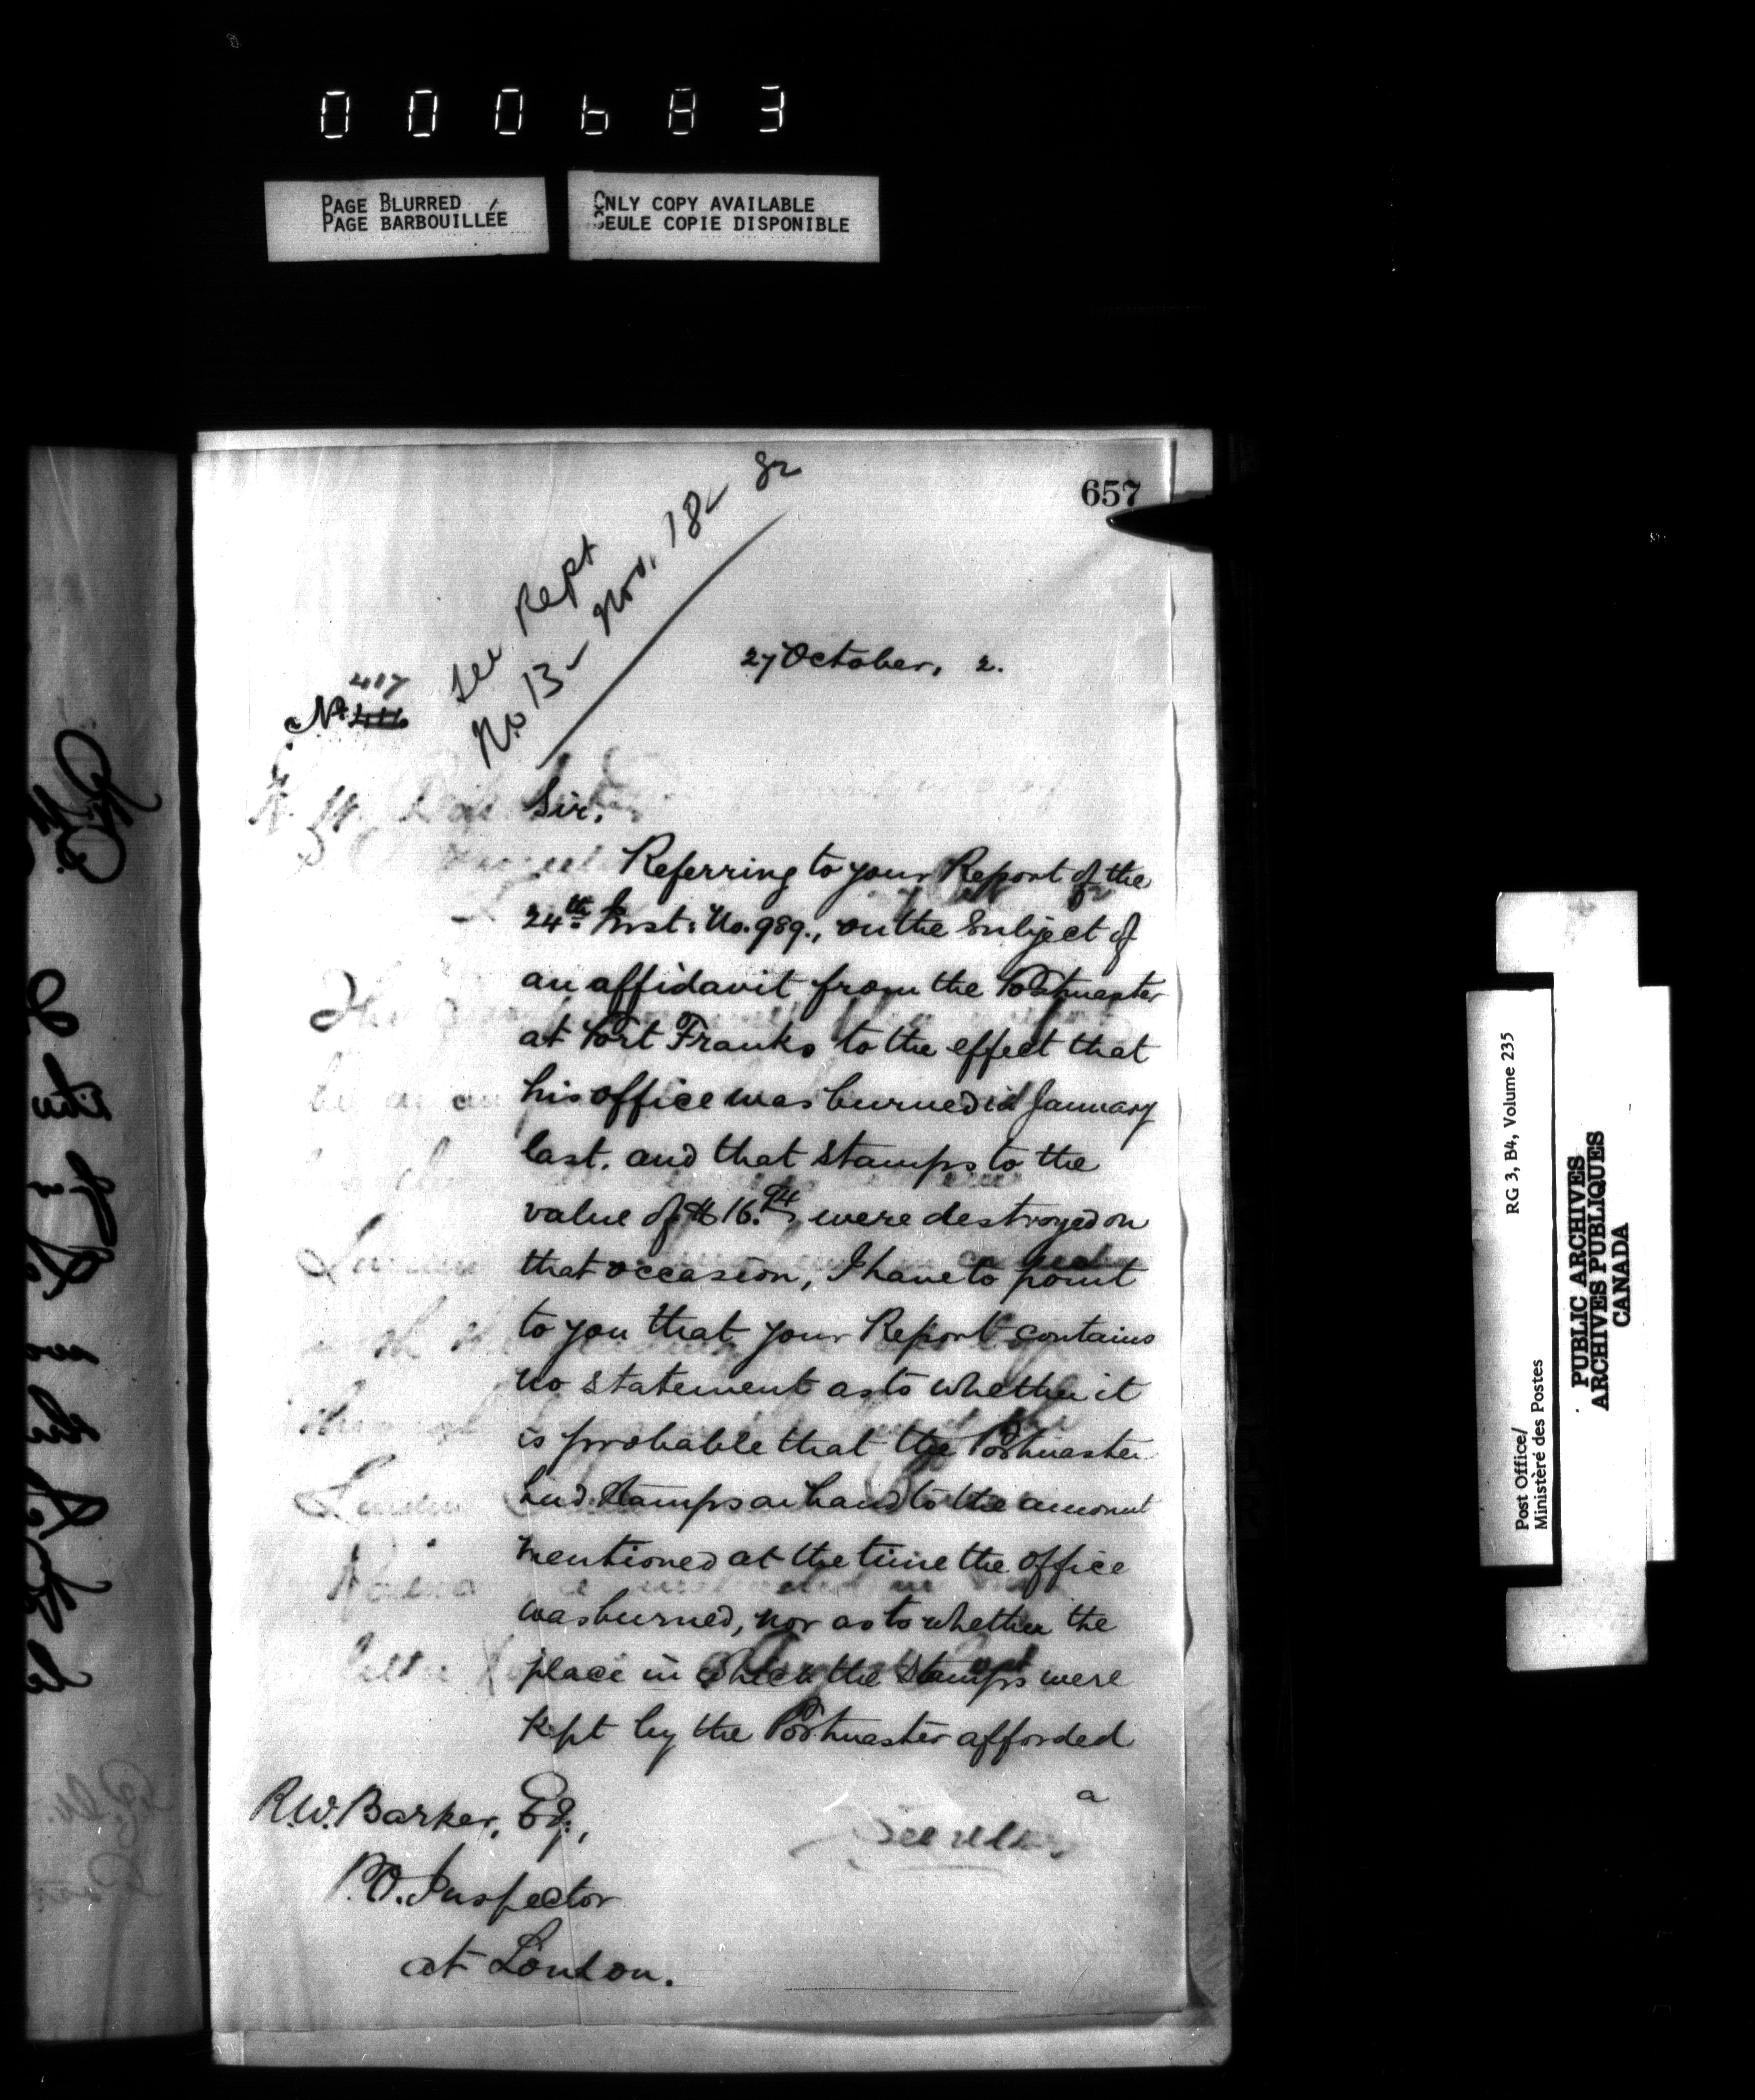 000683
PAGE BLURRED
PAGE BARBOUILLÉE
ONLY COPY AVAILABLE
SEULE COPIE DISPONIBLE
657
See Rept
No. 13 - Nov. 18 - 82
27 October, 2.
417
No. 416
Sir,
Referring to your Report of the
24th Inst: No. 989., on the subject of
an affidavit from the Postmaster
at Port Franks to the effect that
his office was burned in January
last, and that stamps to the
value of $16.94, were destroyed on
that occasion, I have to point
to you that your Report contains
no statement as to whether it
is probable that the Postmaster
had stamps on hand to the amount
mentioned at the time the office
was burned, nor as to whether the
place in which the stamps were
kept by the Postmaster afforded
a
R.W. Barker, Esq.,
P.O. Inspector
at London.
RG 3, B4, Volume 235
Post Office/
Ministère des Postes
PUBLIC ARCHIVES
ARCHIVES PUBLIQUES
CANADA